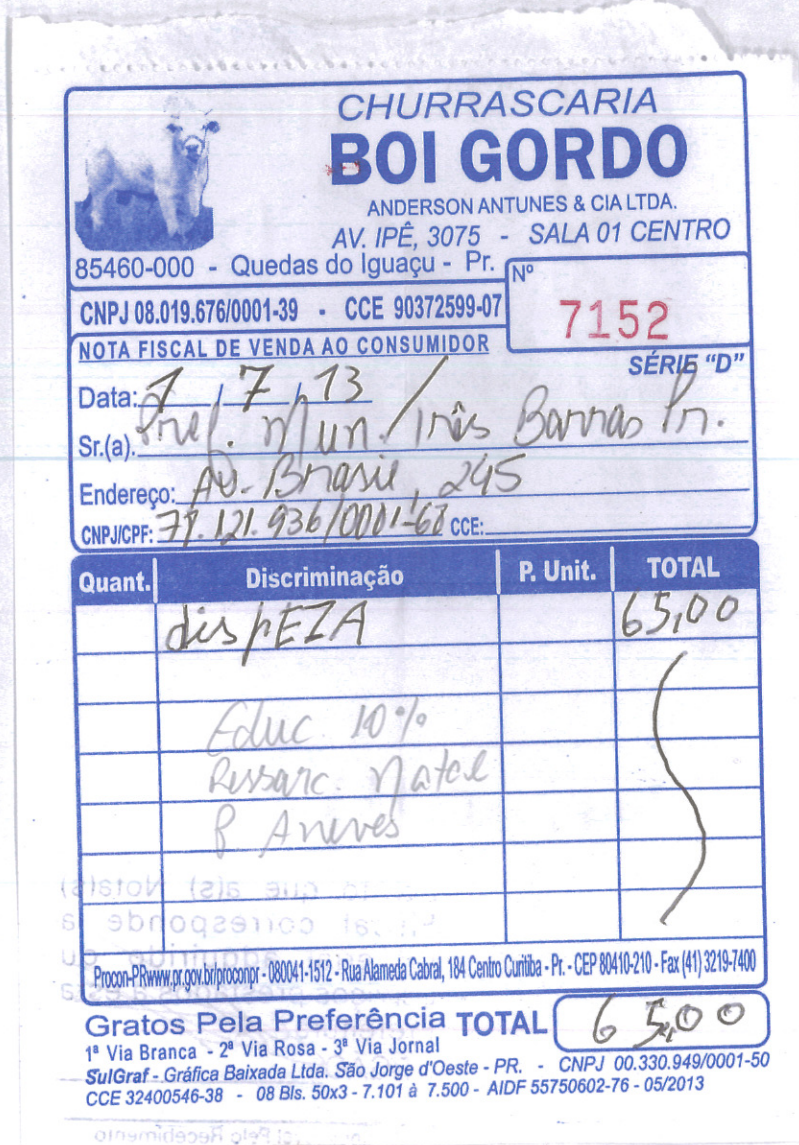 CHURRASCARIA
BOI GORDO
ANDERSON ANTUNES & CIA LTDA.
AV. IPÊ, 3075 - SALA 01 CENTRO
85460-000 - Quedas do Iguaçu - Pr.
CNPJ 08.019.676/0001-39 - CCE 90372599-07
Nº
7152
NOTA FISCAL DE VENDA AO CONSUMIDOR
SÉRIE "D"
Data: 1 / 7 / 13
Sr.(a). Pref. Mun. Três Barras Pr.
Endereço: Av. Brasil, 245
CNPJ/CPF: 78.121.936/0001-68 CCE:
Quant. Discriminação P. Unit. TOTAL
dispEZA 65,00
Educ 10%
Ressarc. Natel
Procon-PRwww.pr.gov.br/proconpr - 080041-1512 - Rua Alameda Cabral, 184 Centro Curitiba - Pr. - CEP 80410-210 - Fax (41) 3219-7400
Gratos Pela Preferência TOTAL 65,00
1ª Via Branca - 2ª Via Rosa - 3ª Via Jornal
SulGraf - Gráfica Baixada Ltda. São Jorge d'Oeste - PR. - CNPJ 00.330.949/0001-50
CCE 32400546-38 - 08 Bls. 50x3 - 7.101 à 7.500 - AIDF 55750602-76 - 05/2013